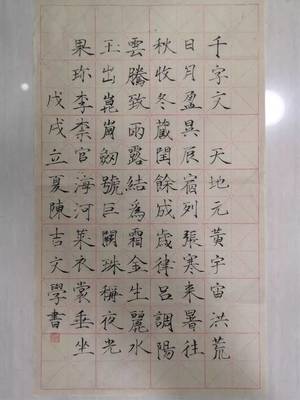 千字文 天地元黃宇宙洪荒
日月盈昃辰宿列張寒来暑往
秋收冬藏閏餘成歲律呂調陽
雲騰致雨露結為霜金生麗水
玉出崑岡劒號巨闕珠稱夜光
果珍李柰官海河菜衣裳垂坐
戊戌立夏陳吉文學書